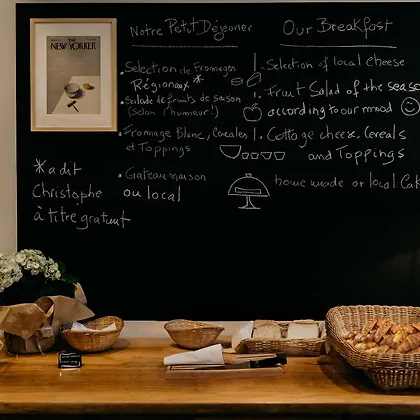 THE
NEW YORKER
Notre Petit Déjeuner
. Selection de Fromages
Régionaux *
. Salade de fruits de saison
(selon l'humeur!)
. Fromage Blanc, Cereales
et Toppings
. Gateau maison
ou local
*a dit
Christophe
à titre gratuit
Our Breakfast
. Selection of local cheese
. Fruit Salad of the seaso
according to our mood
. Cottage cheese, Cereals
and Toppings
home made or local Cak